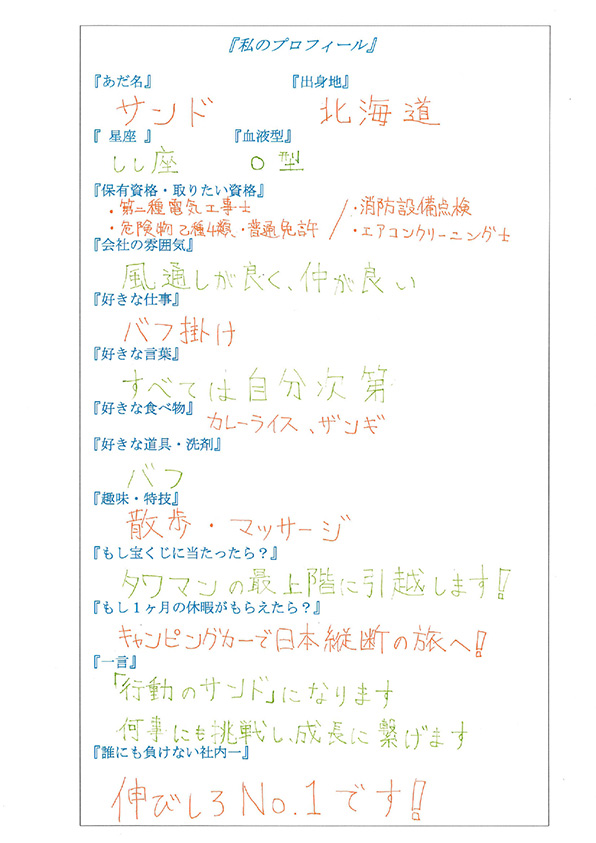 『私のプロフィール』
『あだ名』 『出身地』
サンド 北海道
『 星座 』 『血液型』
しし座 O型
『保有資格・取りたい資格』
・第二種電気工事士 / ・消防設備点検
・危険物乙種4類、・普通免許 ・エアコンクリーニング士
『会社の雰囲気』
風通しが良く、仲が良い
『好きな仕事』
バフ掛け
『好きな言葉』
すべては自分次第
『好きな食べ物』
カレーライス、ザンギ
『好きな道具・洗剤』
バフ
『趣味・特技』
散歩・マッサージ
『もし宝くじに当たったら?』
タワマンの最上階に引越します!
『もし1ヶ月の休暇がもらえたら?』
キャンピングカーで日本縦断の旅へ!
『一言』
「行動のサンド」になります
何事にも挑戦し、成長に繋げます
『誰にも負けない社内一』
伸びしろNo.1です!!